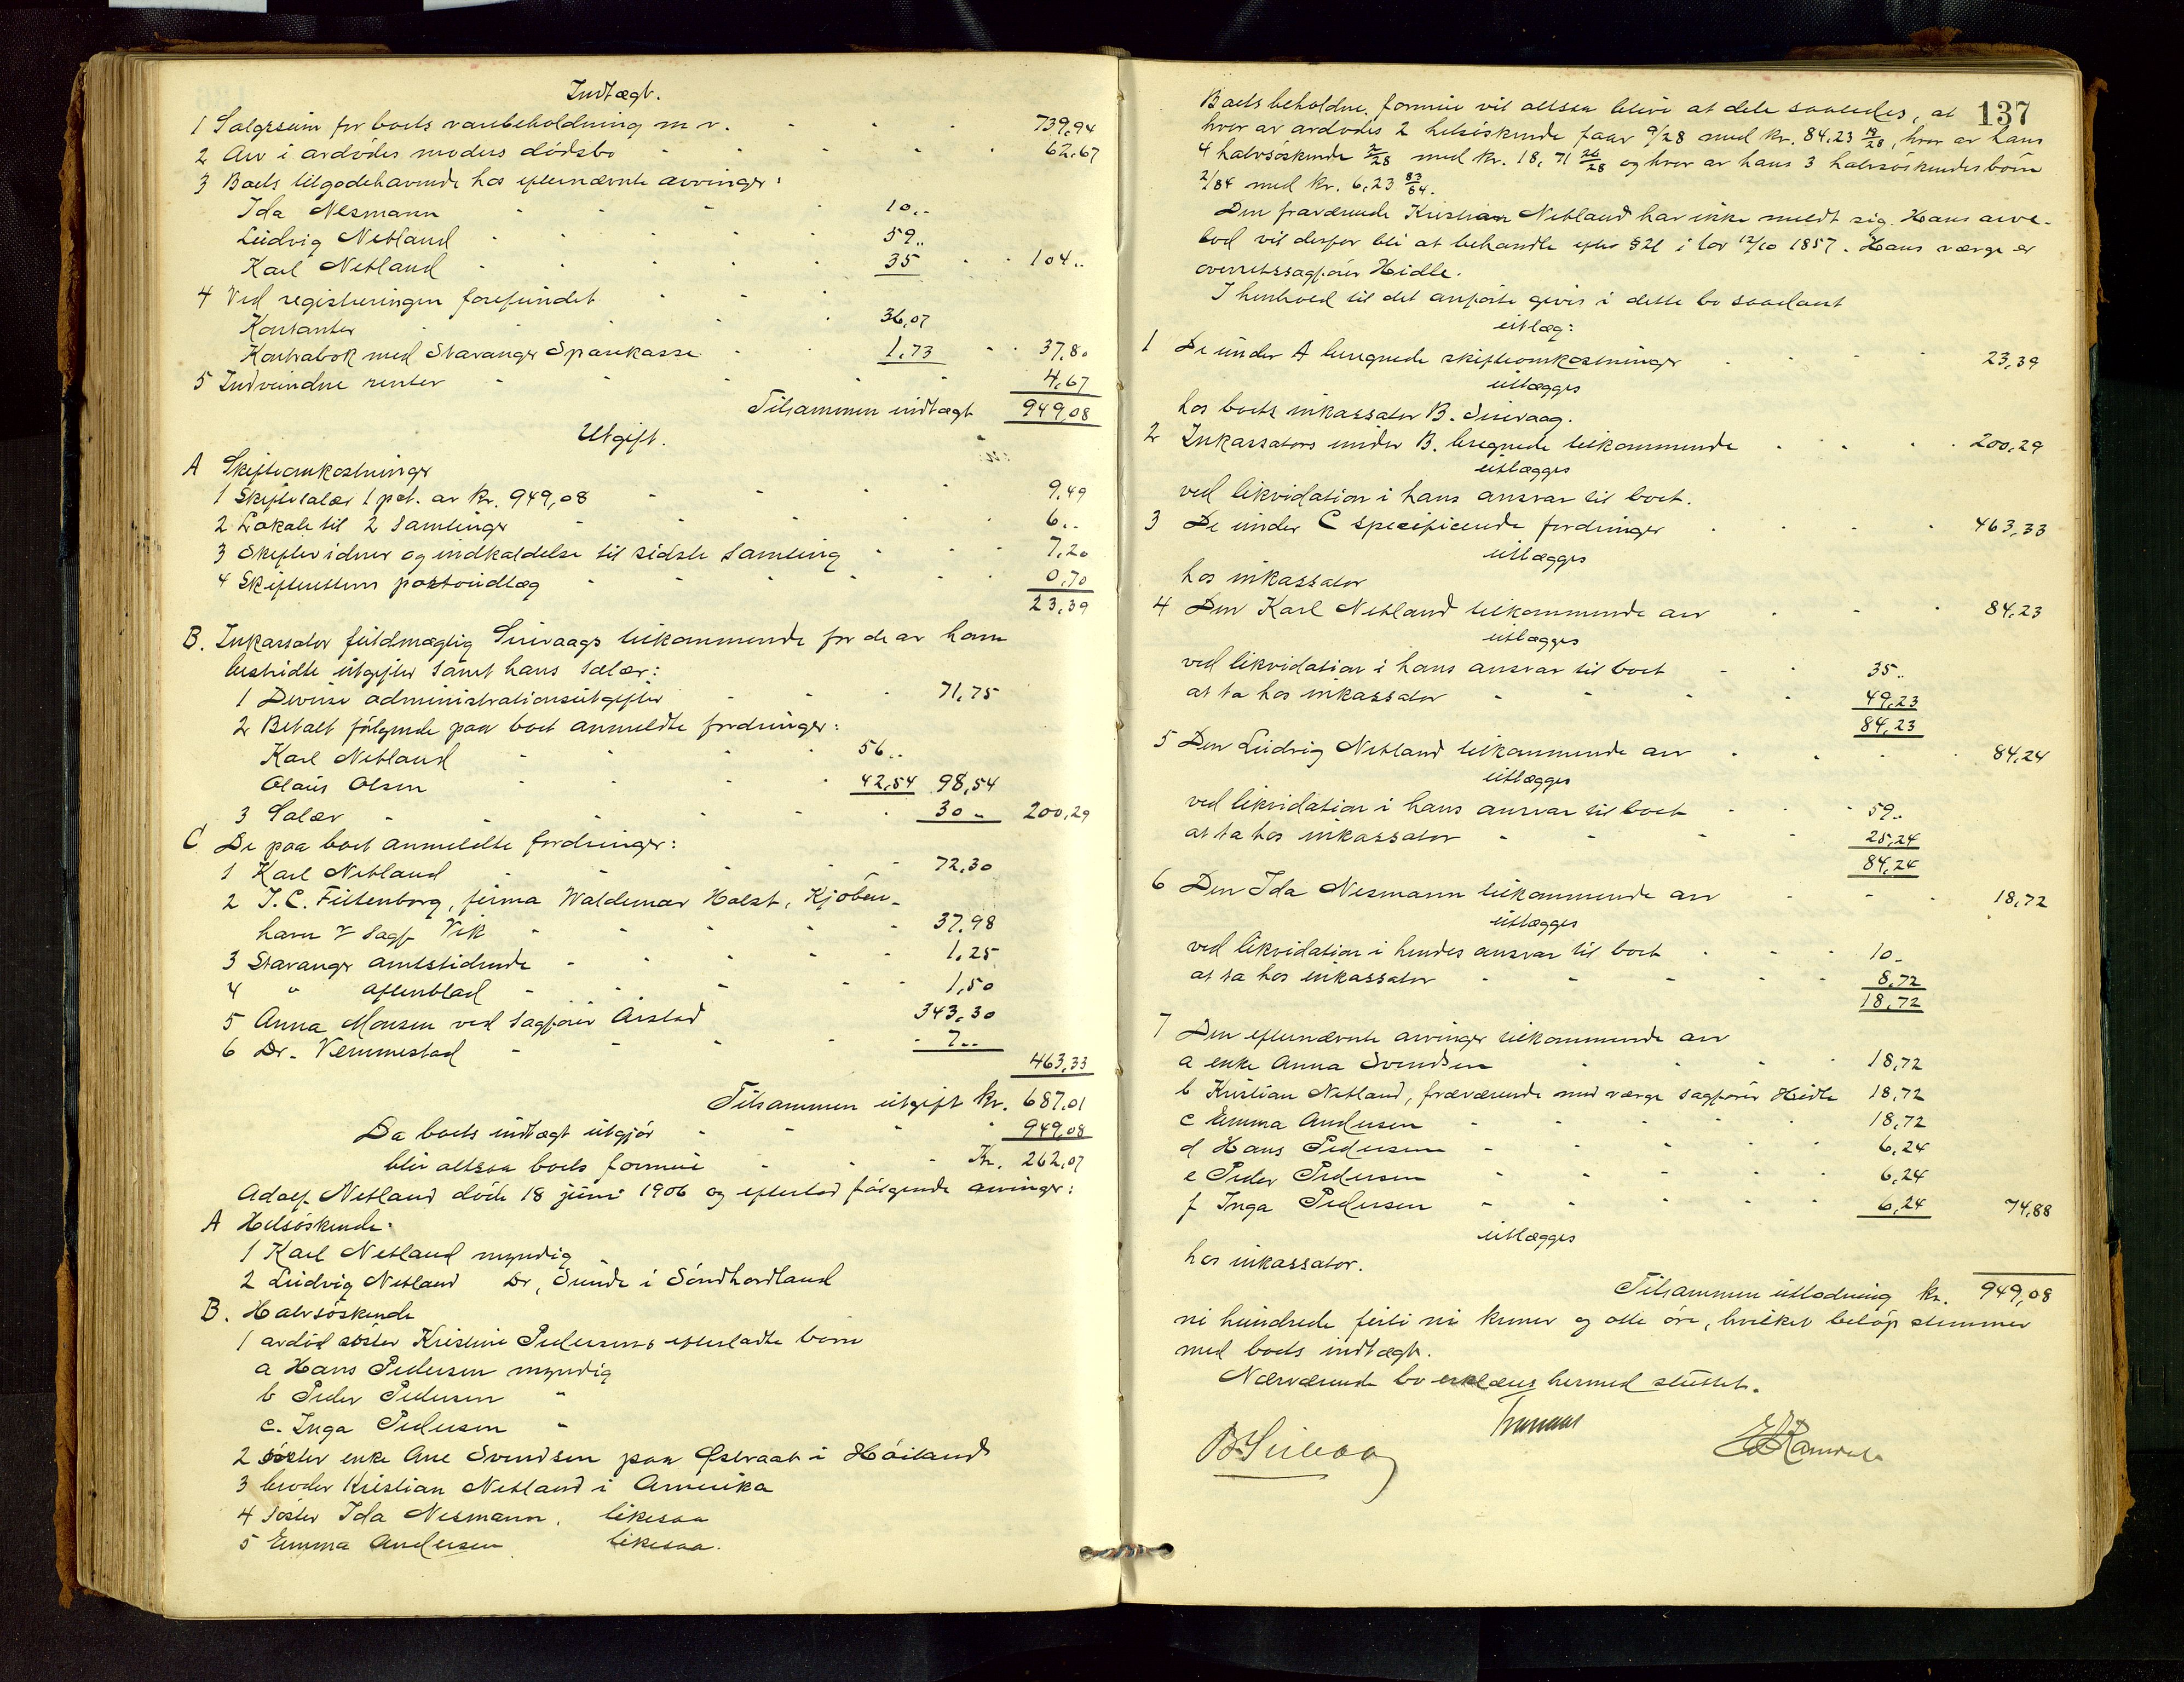 Indtægt.
1 Salgssum for boets varebeholdning m v. 739,94
2 Arv i avdødes moders dødsbo 62,67
3 Boets tilgodehavende hos efternævnte arvinger:
Ida Nesmann 10..
Ludvig Netland 59..
Karl Netland 35 104..
4 Ved registreringen forefundet
Kontanter 36,07
Kontrabok med Stavanger Sparekasse 1,73 37,80
5 Indvundne renter 4,67
Tilsammen indtægt 949,08
Utgift.
A Skifteomkostninger
1 Skiftesalær 1 pct. av Kr. 949,08 9,49
2 Lokale til 2 samlinger 6..
3 Skiftevidner og indkaldelse til sidste samling 7,20
4 Skifterettens portoutlæg 0,70
23,39
B. Inkassator fuldmægtig Sirevaags tilkommende for de av ham
bestridte utgifter samt hans salær:
1 Diverse administrationsutgifter 71,75
2 Betalt følgende paa boet anmeldte fordringer:
Karl Netland 56..
Olaus Olsen 42,54 98,54
3 Salær 30.. 200,29
C De paa boet anmeldte fordringer:
1 Karl Netland 72,30
2 J. C. Filtenborg, firma Waldemar Holst, Kjøben-
havn v sagf. Vik 37,98
3 Stavanger amtstidende 1,25
4 " aftenblad 1,50
5 Anna Monsen ved sagfører Aarstad 343,30
6 Dr. Vemmestad 7..
463,33
Tilsammen utgift Kr. 687,01
Da boets indtægt utgjør 949,08
blir altsaa boets formue Kr. 262,07
Adolf Netland døde 18 juni 1906 og efterlod følgende arvinger:
A Helsøskende:
1 Karl Netland myndig
2 Ludvig Netland Do, Sunde i Søndhordland
B. Halvsøskende
1 avdød søster Kristine Pedersens efterladte børn
a Hans Pedersen myndig
b Peder Pedersen "
c. Inga Pedersen "
2 søster enke Ane Svendsen paa Østraat i Høiland
3 broder Kristian Netland i Amerika
4 søster Ida Nesmann, likesaa
5 Emma Andersen likesaa.
137
Boets beholdne formue vil altsaa blive at dele saaledes, at
hver av avdødes 2 helsøskende faar 9/28 med kr. 84,23 19/28, hver av hans
4 halvsøskende 2/28 med kr. 18,71 26/28 og hver av hans 3 halvsøskendebørn
2/84 med kr. 6,23 83/84.
Den fraværende Kristian Netland har ikke meldt sig. Hans arve-
lod vil derfor bli at behandle efter § 21 i lov 12/10 1857. Hans værge er
overretssagfører Hidle.
I henhold til det anførte gives i dette bo saadant
utlæg:
1 De under A beregnede skifteomkostninger 23,39
utlægges
hos boets inkassator B. Sirevaag.
2 Inkassators under B. beregnede tilkommende 200,29
utlægges
ved likvidation i hans ansvar til boet.
3 De under C specificerede fordringer 463,33
utlægges
hos inkassator
4 Den Karl Netland tilkommende arv 84,23
utlægges
ved likvidation i hans ansvar til boet 35..
at ta hos inkassator 49,23
84,23
5 Den Ludvig Netland tilkommende arv 84,24
utlægges
ved likvidation i hans ansvar til boet 59..
at ta hos inkassator 25,24
84,24
6 Den Ida Nesmann tilkommende arv 18,72
utlægges
ved likvidation i hendes ansvar til boet 10..
at ta hos inkassator 8,72
18,72
7 Den efternævnte arvinger tilkommende arv
a enke Anna Svendsen 18,72
b Kristian Netland, fraværende med værge sagfører Hidle 18,72
c Emma Andersen 18,72
d Hans Pedersen 6,24
e Peder Pedersen 6,24
f Inga Pedersen 6,24 74,88
utlægges
hos inkassator.
Tilsammen utlodning kr. 949,08
ni hundrede firti ni kroner og otte øre, hvilket beløp stemmer
med boets indtægt.
Nærværende bo erklæres hermed sluttet.
B. Sirevaag